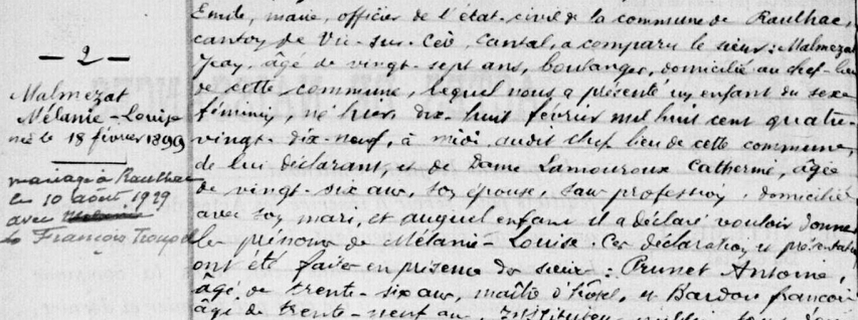 — 2 —
Malmezat
Mélanie-Louise
née le 18 février 1899
mariage à Raulhac
le 10 août 1929
avec
François
Emile, maire, officier de l'état-civil de la commune de Raulhac,
canton de Vic-sur-Cère, Cantal, a comparu le sieur: Malmezat
Jean, âgé de vingt-sept ans, boulanger, domicilié au chef-lieu
de cette commune, lequel nous a présenté un enfant du sexe
féminin, né hier dix-huit février mil huit cent quatre-
vingt-dix-neuf, à midi, audit chef lieu de cette commune,
de lui déclarant, et de Dame Lamouroux Catherine, âgée
de vingt-six ans, son épouse, sans profession, domiciliée
avec son mari, et auquel enfant il a déclaré vouloir donner
les prénoms de Mélanie-Louise. Ces déclaration et présentation
ont été faites en présence des sieurs: Prunet Antoine,
âgé de trente-six ans, maître d'hôtel, et Bardou françois
âgé de trente-neuf ans, Instituteur public, tous deux